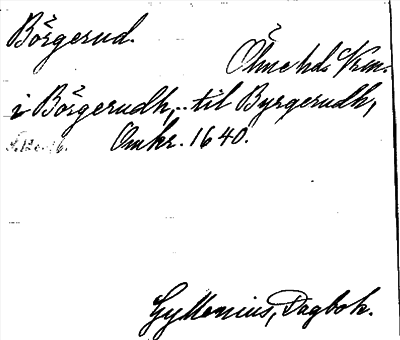 Börgerud.
Ölme hd. Vrm.
i Börgerudh, - til Byrgerudh,
Omkr. 1640.
Gyllenius, Dagbok.